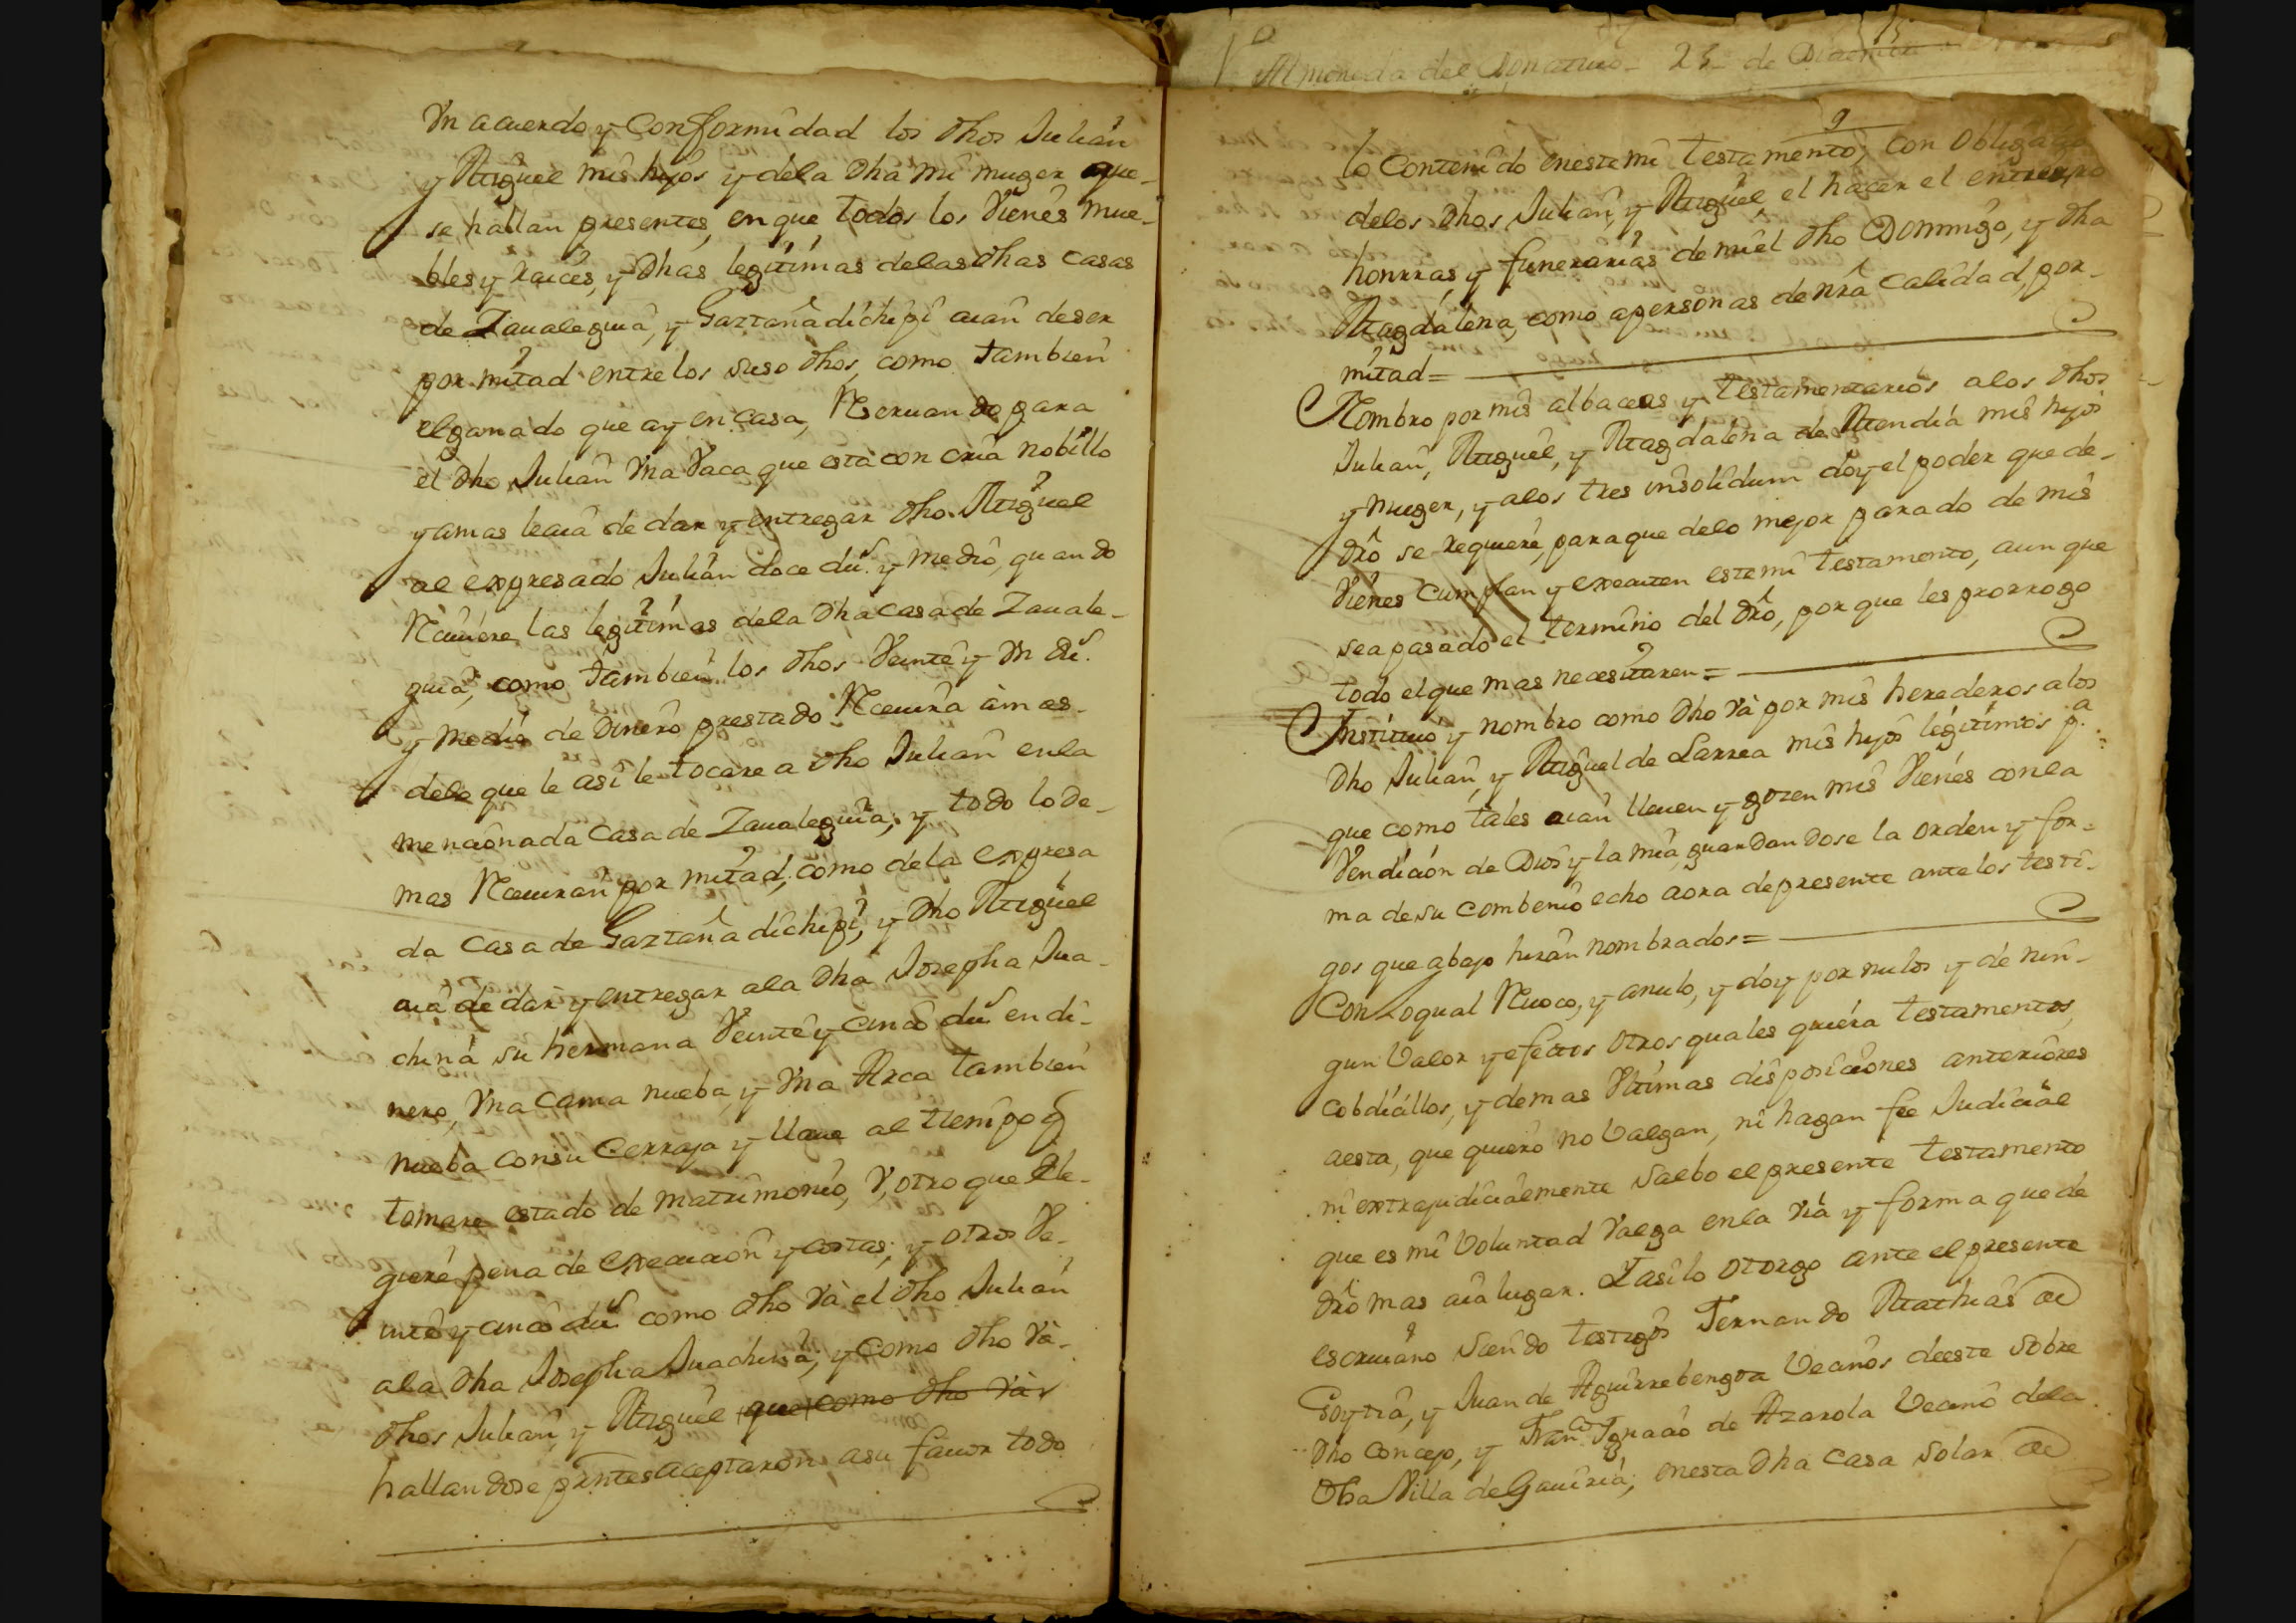 Vn acuerdo y Conformidad los dhos Julian
y Miguel mis hijos y dela dha mi muger que-
se hallan presentes, en que todos los Vienes mue-
bles y raices, y dhas legitimas delas dhas casas
de Zaualeguia, y Gaztañadichipi aian deser
por mitad entre los suso dhos, como tambien
elganado que ay en casa, Reseruando para
el dho Julian Vna Vaca que esta con cria nobillo
y amas leaia de dar y entregar dho Miguel
al expresado Julian doce dus. y medio, quando
Reciuiere las legitimas dela dha casa de Zauale-
guia, como tambien los dhos Veinte y Vn dus.
y medio de dinero prestado Receuira amas-
delo que le asi le tocare a dho Julian enla
mencionada Casa de Zaualeguia, y todo lo de-
mas Receuiran por mitad, como dela expresa
da Casa de Gaztañadichipi, y dho Miguel
aia de dar y entregar ala dha Josepha Jua-
china su hermana Veinte y cinco dus en di-
nero, Vna Cama nueba, y Vna Arca tambien
nueba consu Cerraja y llaue al tiempo q
tomare estado de matrimonio, Y, otro que Ele-
giere pena de execucion y costas; y otros Ve-
inte y cinco dus como dho Va el dho Julian
ala dha Josepha Juachina, y como dho Va-
dhos Julian, y Miguel que como dho Va
hallandose prntes aceptaron asu fauor todo
Almoneda del Donatiuo - 25 - de
9
lo Contenido eneste mi testamento, Con
delos dhos Julian, y Miguel el hacer el entierro
honrras, y funerarias de mi el dho Domingo, y dha
Magdalena, como apersonas de nra Calidad, por-
mitad=
Nombro por mis albaceas y testamentarios alos dhos
Julian, Miguel, y Magdalena de Mendia mis hijos
y muger, y alos tres insolidum doy el poder que de-
dro se requiere, paraque delo mejor parado de mis
Vienes Cumplan y executen este mi testamento, aun que
sea pasado el termino del dro, por que les prorrogo
todo elque mas necesitaren=
Instituio y nombro como dho Va por mis herederos alos
dho Julian, y Miguel de Larrea mis hijos legitimos pa
que como tales aian lleuen y gozen mis Vienes conla
Vendicion de Dios y la mia, guardandose la orden y for-
ma desu combenio echo aora depresente ante los testi-
gos que abajo hiran nombrados=
Con Loqual Reuoco, y anulo, y doy por nulos y de nin-
gun Valor y efectos otros quales quiera testamentos,
Cobdicillos, y demas Vltimas disposiciones anteriores
aesta, que quiero no Valgan, ni hagan fee Judicial
ni extrajudicialmente Salbo el presente testamento
que es mi Voluntad Valga enla Via y forma que de
dro mas aia lugar. Y asi lo otorgo ante el presente
escriuano siendo testigos Fernando Mathias de
Goytia, y Juan de Aguirrebengoa Vecinos deeste sobre
dho Concejo, y Franco Ygnacio de Azarola Vecino dela
dha Villa de Gauiria, enesta dha Casa Solar de